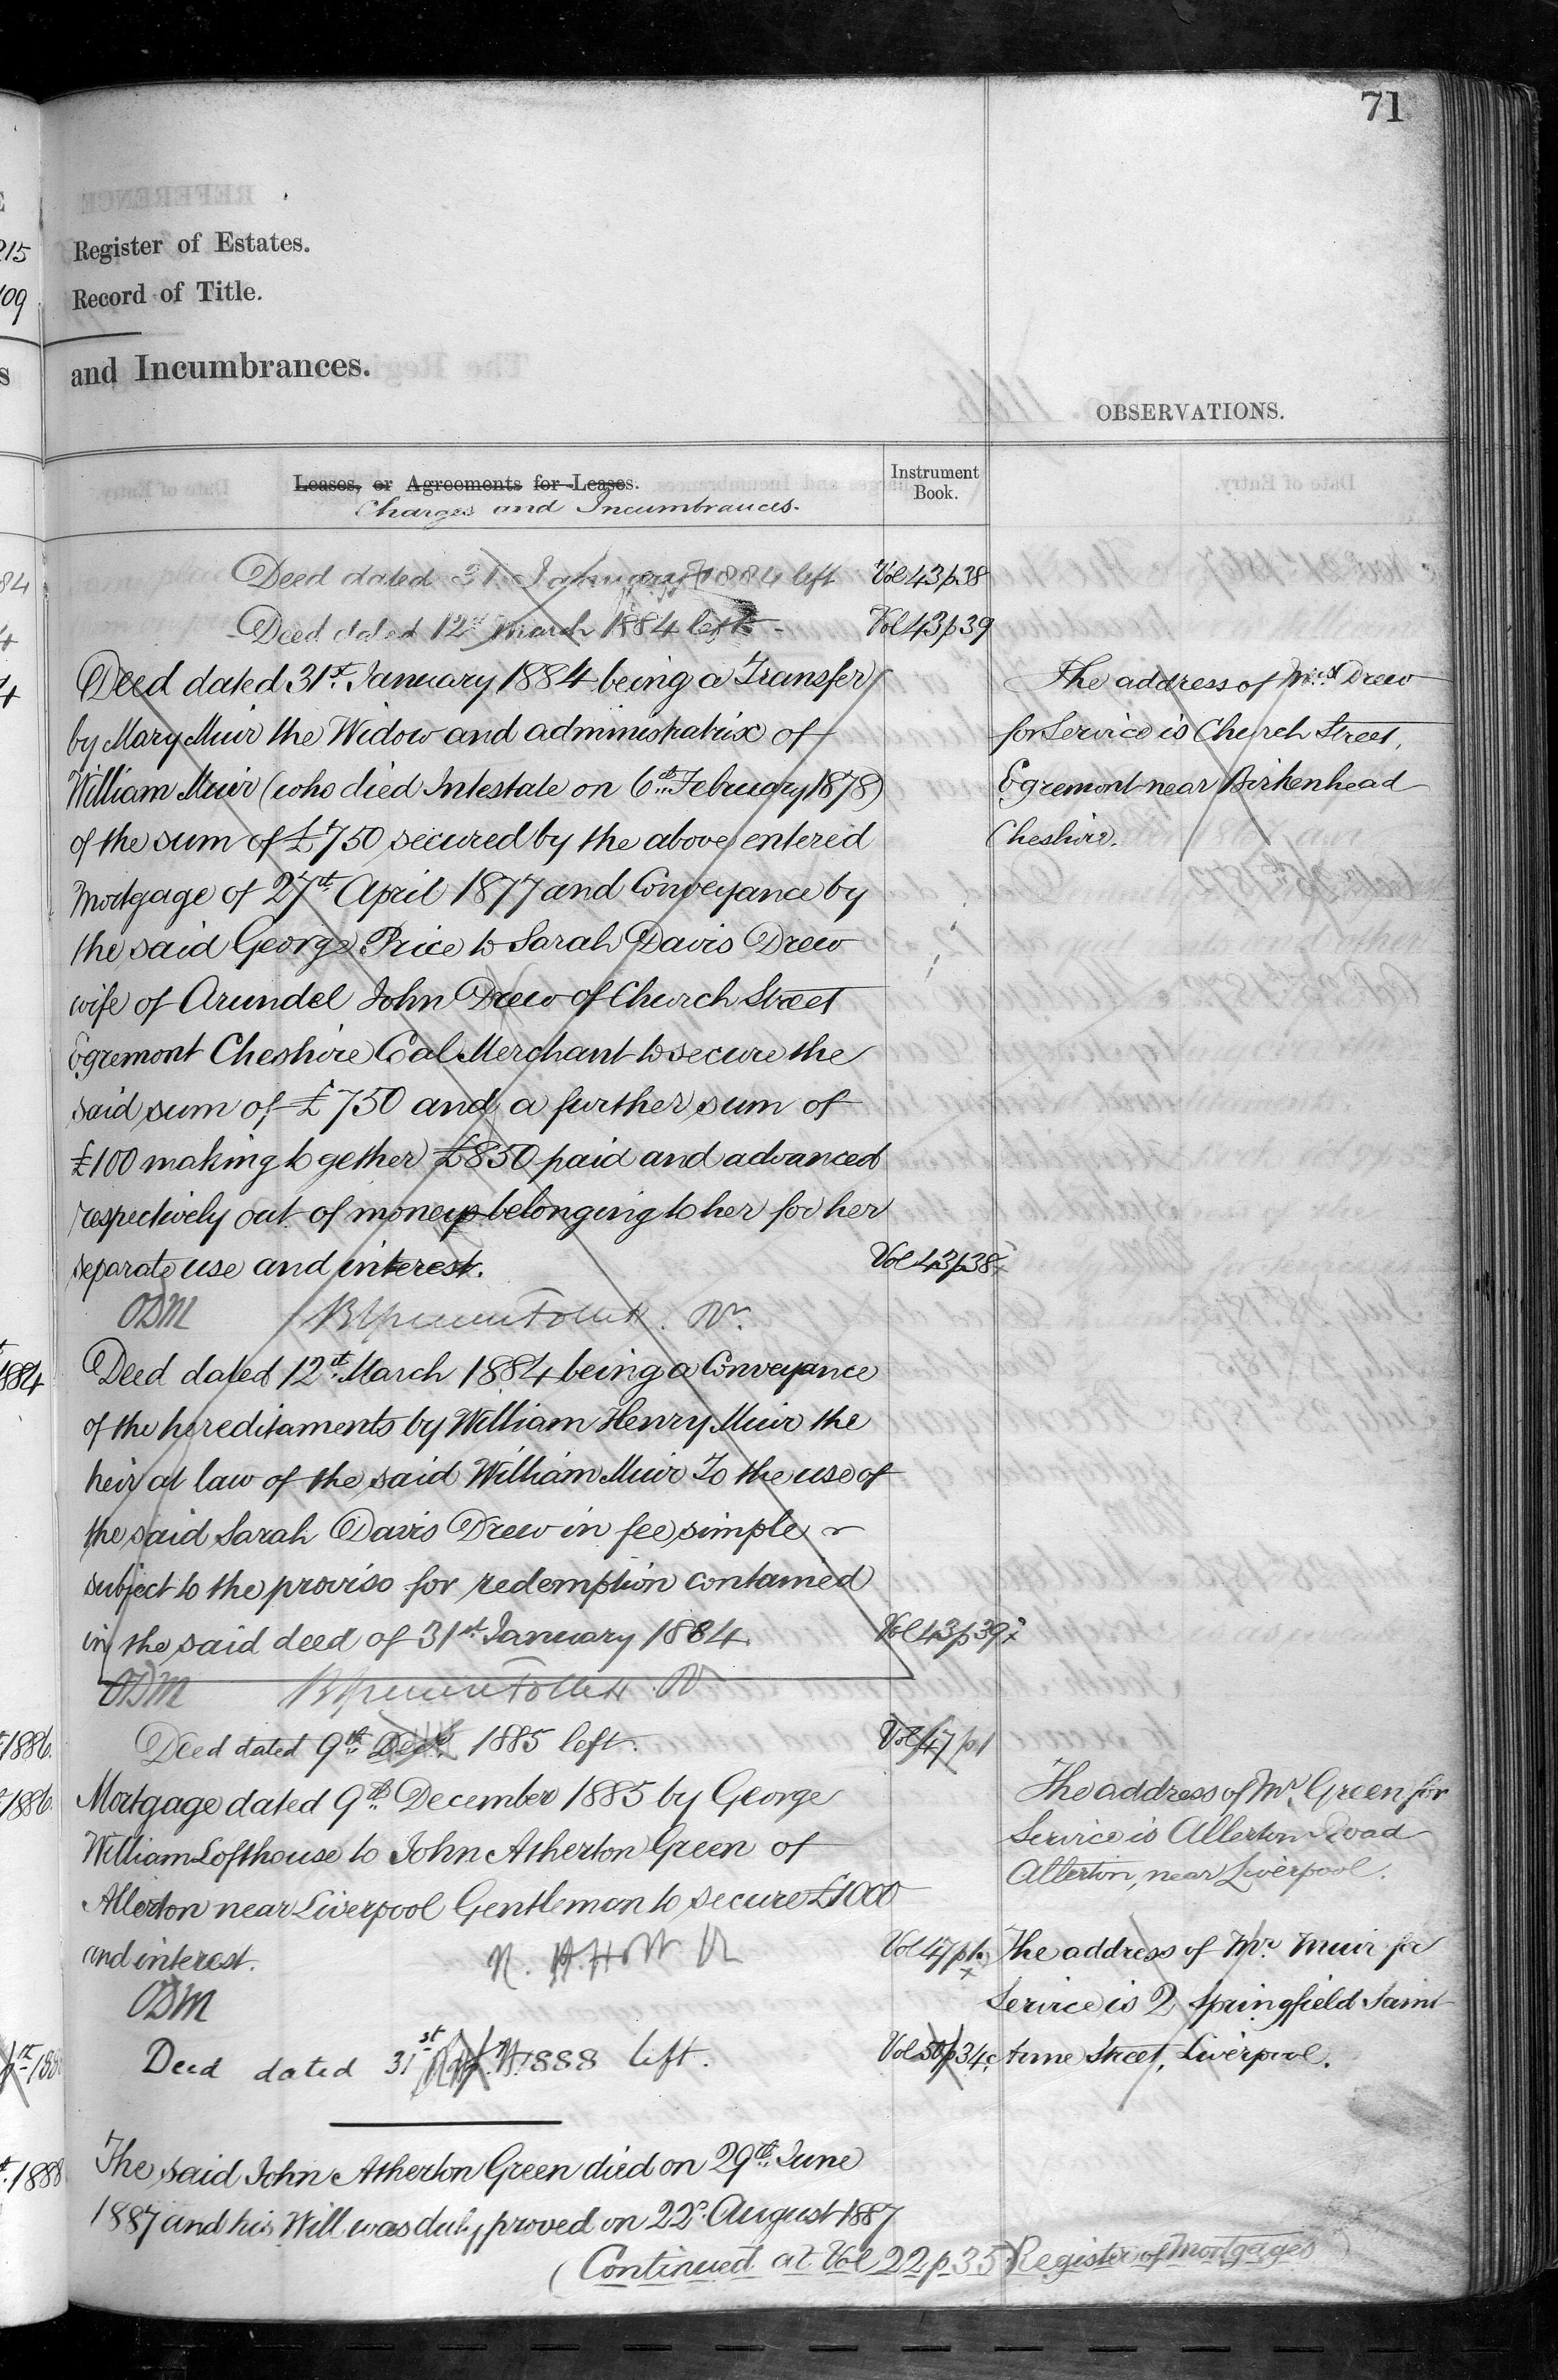 71
215
109
Register of Estates.
Record of Title.
and Incumbrances.
OBSERVATIONS.
Leases, or Agreements for Leases.
Charges and Incumbrances.
Instrument
Book.
Deed dated 31st January 1884 left Vol 43 p 38
Deed dated 12th March 1884 left Vol 43 p 39
Deed dated 31st January 1884 being a Transfer
by Mary Muir the Widow and administratrix of
William Muir (who died Intestate on 6th February 1878)
of the sum of £750 secured by the above entered
Mortgage of 27th April 1877 and Conveyance by
the said George Price to Sarah Davis Drew
wife of Arundel John Drew of Church Street
Egremont Cheshire Coal Merchant to secure the
said sum of £750 and a further sum of
£100 making together £850 paid and advanced
respectively out of moneys belonging to her for her
separate use and interest. Vol 43 p 38
ODM
The address of Mrs Drew
for Service is Church Street,
Egremont near Birkenhead
Cheshire.
1884
Deed dated 12th March 1884 being a Conveyance
of the hereditaments by William Henry Muir the
heir at law of the said William Muir To the use of
the said Sarah Davis Drew in fee simple
subject to the proviso for redemption contained
in the said deed of 31st January 1884. Vol 43 p 39
ODM
1886.
Deed dated 9th Decr 1885 left. Vol 47 p 1
1886.
Mortgage dated 9th December 1885 by George
William Lofthouse to John Atherton Green of
Allerton near Liverpool Gentleman to secure £1000
and interest. Vol 47 p 1
ODM
The address of Mr Green for
Service is Allerton Road
Allerton, near Liverpool.
The address of Mr Muir for
Service is 2 Springfield Saint
Anne Street, Liverpool.
Deed dated 31st 1888 left. Vol 50 p 34
1888
The said John Atherton Green died on 29th June
1887 and his Will was duly proved on 22d August 1887
(Continued at Vol 22 p 35 Register of Mortgages)